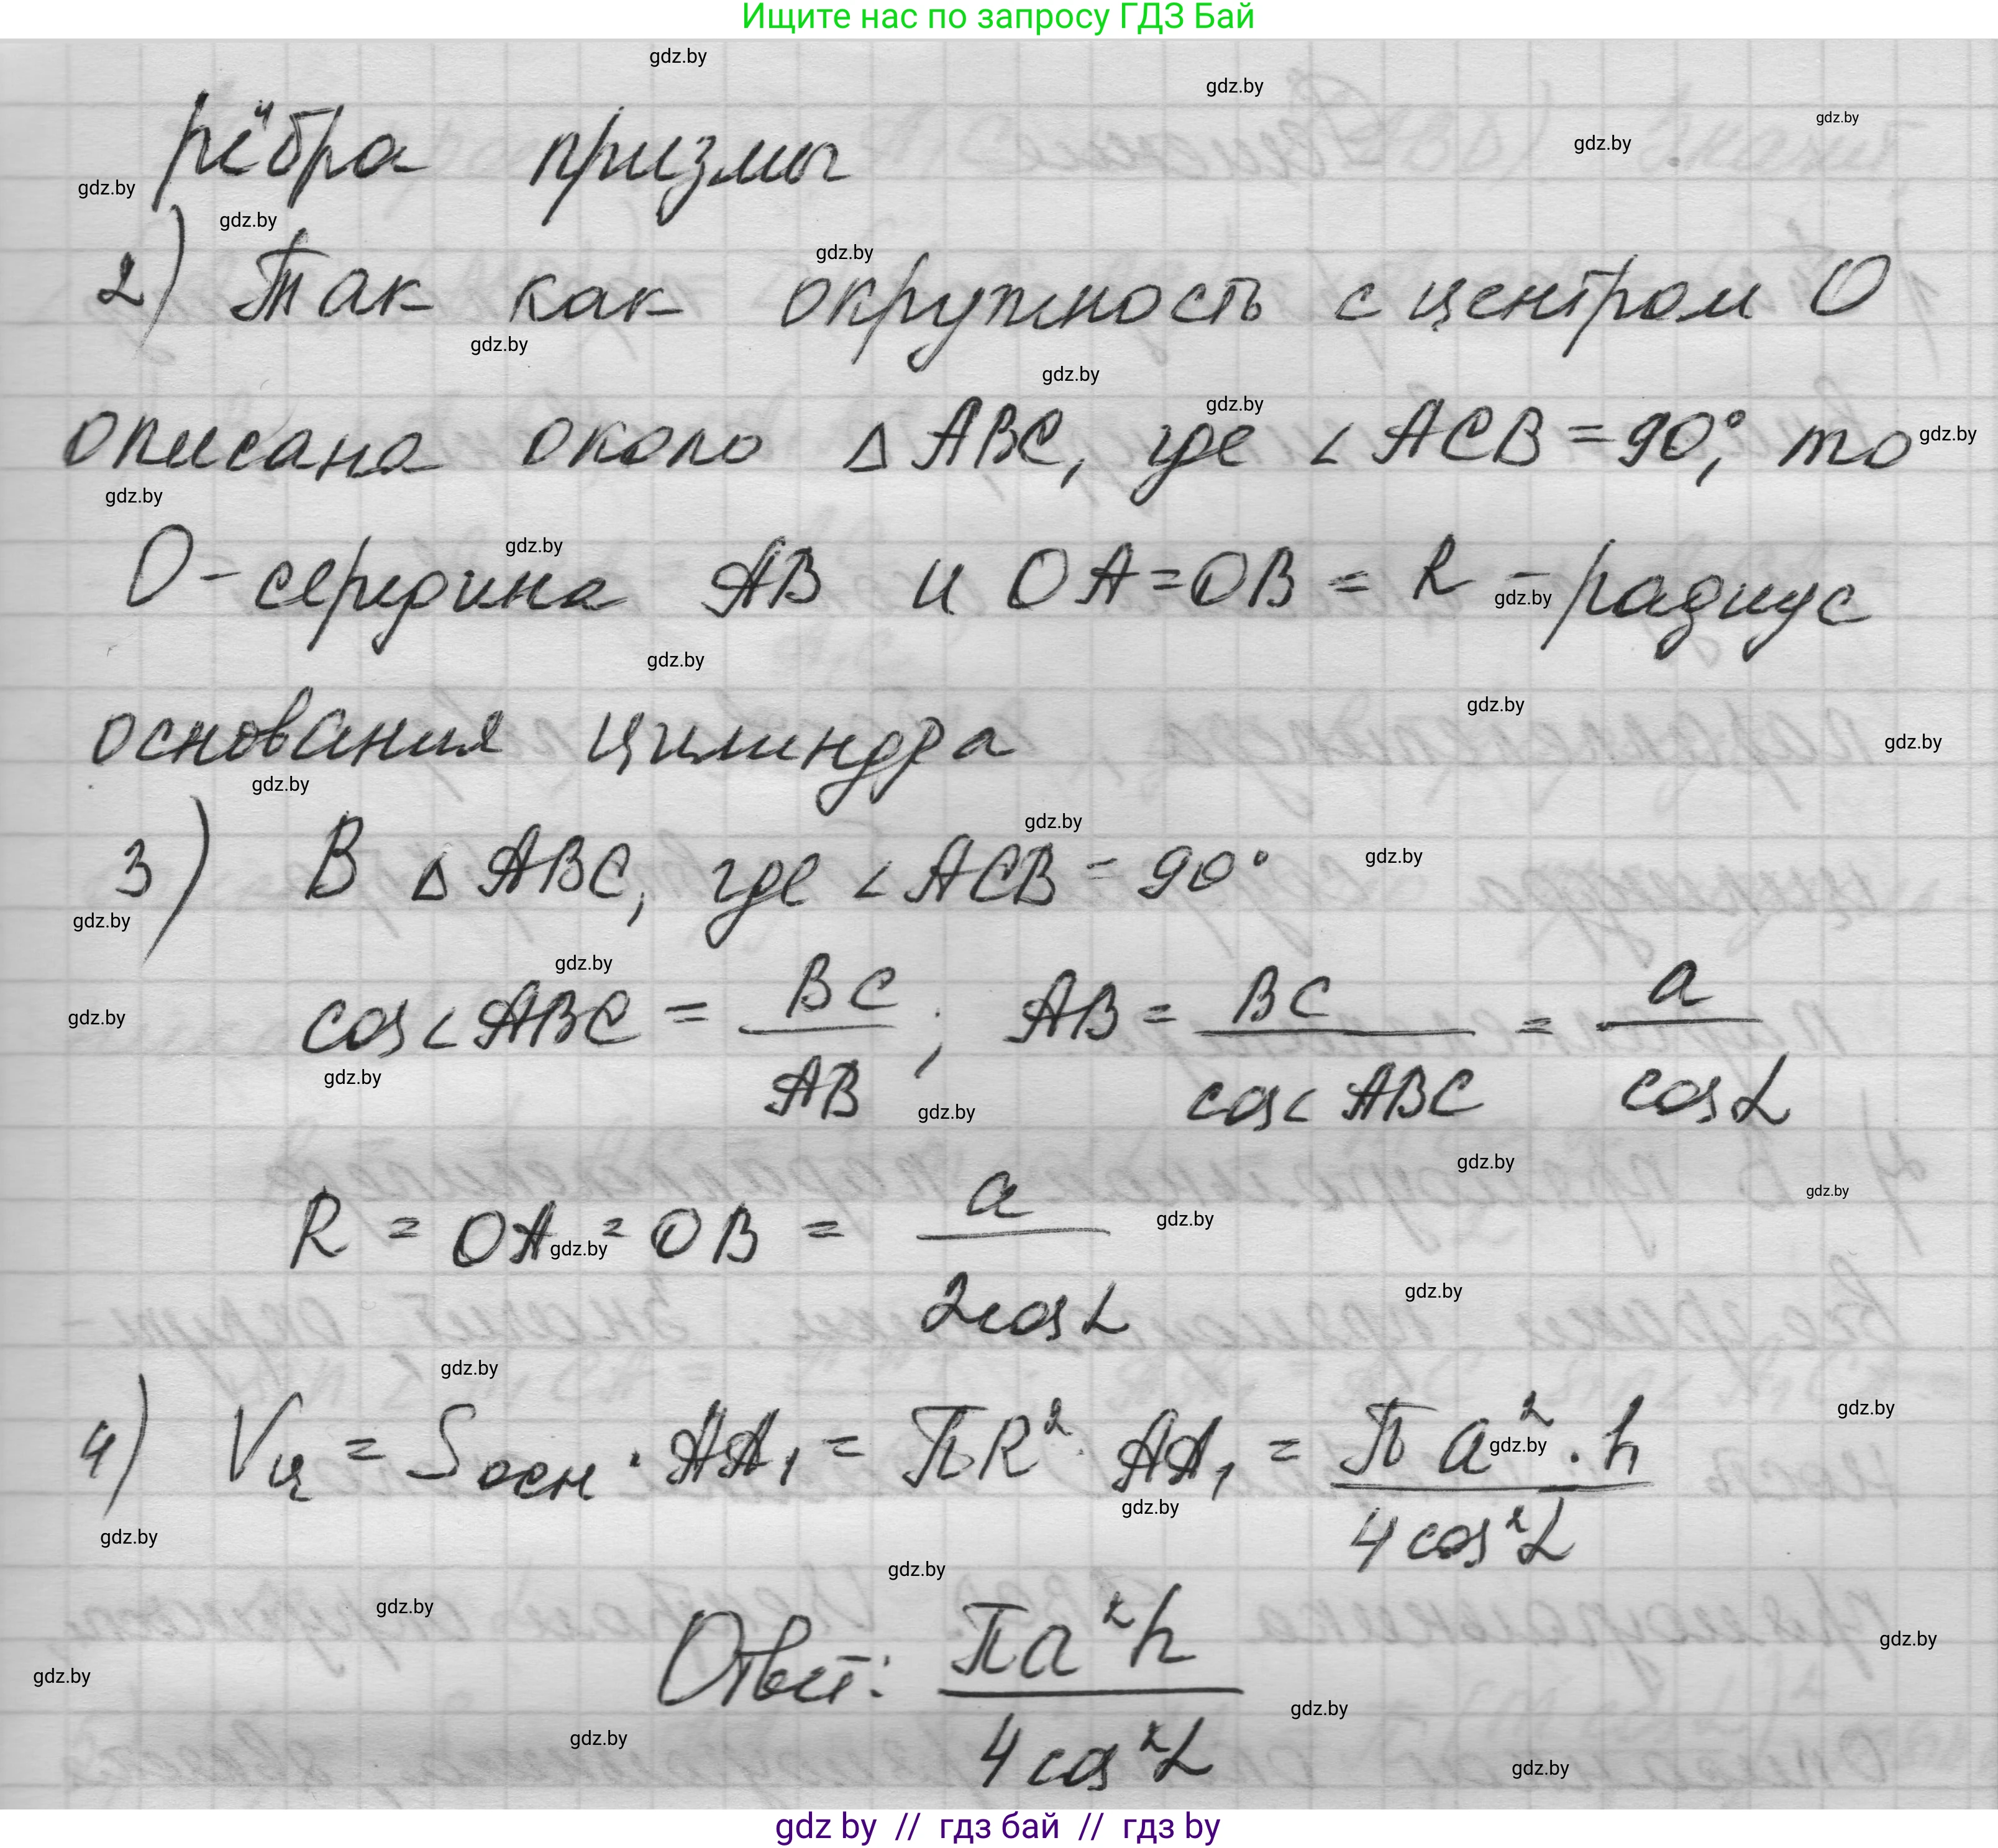 Ищите нас по запросу ГДЗ Бай
рёбра призмы
2) Так как окружность с центром O
описана около ΔABC, где ∠ACB = 90°, то
O - середина AB и OA = OB = R - радиус
основания цилиндра
3) В ΔABC, где ∠ACB = 90°
cos∠ABC = BC/AB ; AB = BC/cos∠ABC = a/cosα
R = OA = OB = a/2cosα
4) Vц = Sосн · AA₁ = πR² · AA₁ = πa² · h/4cos²α
Ответ: πa²h/4cos²α
gdz by // гдз бай // гдз by